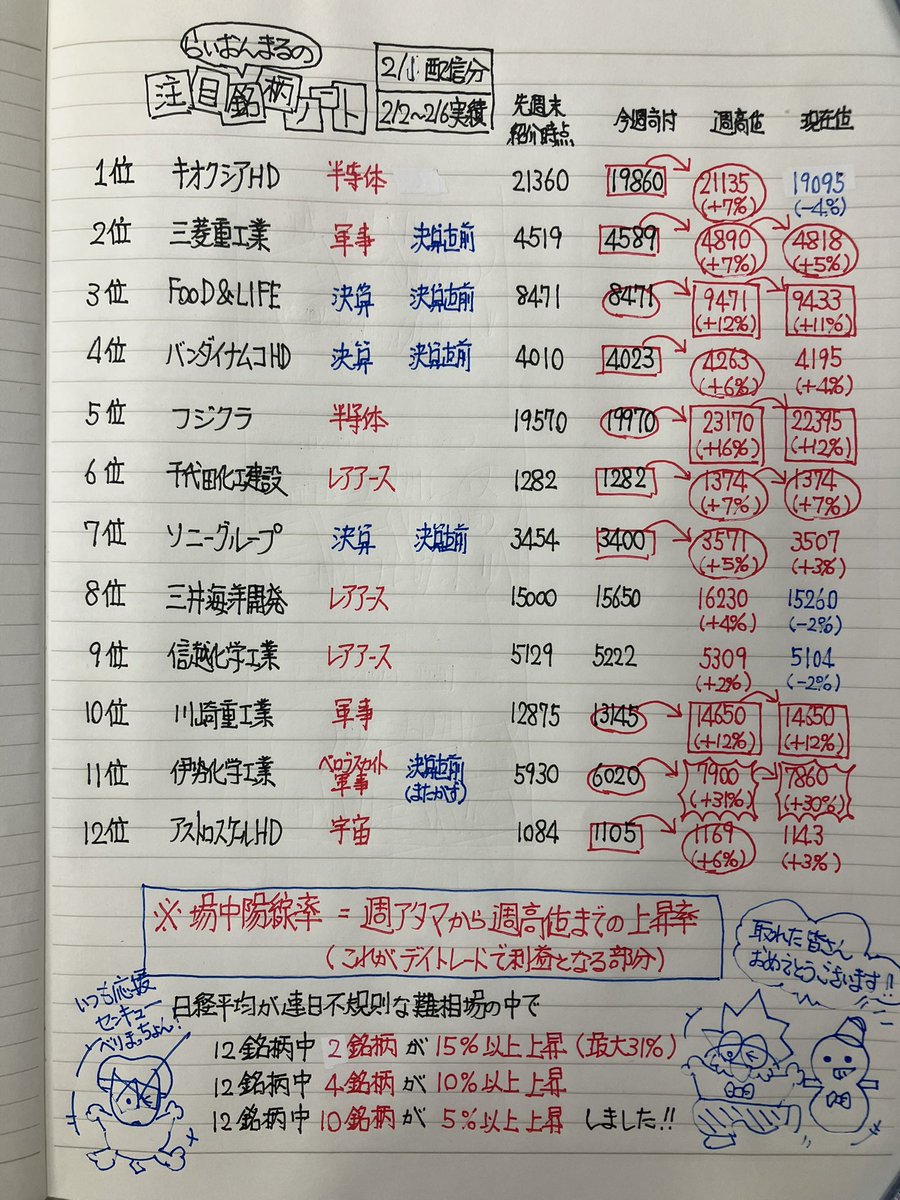 らいおんまるの
注目銘柄ノート
2/1 配信分
2/2~2/6実績
先週末
紹介時点
今週寄付
週高値
現在値
1位 キオクシアHD 半導体 21360 19860 21135 19095
(+7%) (-4%)
2位 三菱重工業 軍事 決算直前 4519 4589 4890 4818
(+7%) (+5%)
3位 FOOD&LIFE 決算 決算直前 8471 8471 9471 9433
(+12%) (+11%)
4位 バンダイナムコHD 決算 決算直前 4010 4023 4263 4195
(+6%) (+4%)
5位 フジクラ 半導体 19570 19970 23170 22395
(+16%) (+12%)
6位 千代田化工建設 レアアース 1282 1282 1374 1374
(+7%) (+7%)
7位 ソニーグループ 決算 決算直前 3454 3400 3571 3507
(+5%) (+3%)
8位 三井海洋開発 レアアース 15000 15650 16230 15260
(+4%) (-2%)
9位 信越化学工業 レアアース 5129 5222 5309 5104
(+2%) (-2%)
10位 川崎重工業 軍事 12875 13145 14650 14650
(+12%) (+12%)
11位 伊勢化学工業 ペロブスカイト 決算直前 5930 6020 7900 7860
軍事 (またがず) (+31%) (+30%)
12位 アストロスケールHD 宇宙 1084 1105 1169 1143
(+6%) (+3%)
※ 場中陽線率 = 週アタマから週高値までの上昇率
(これがデイトレードで利益となる部分)
取れた皆さん
おめでとうございます!!
いつも応援
センキュー
べりまっちょん!
日経平均が連日不規則な難相場の中で
12銘柄中 2銘柄が 15%以上上昇(最大31%)
12銘柄中 4銘柄が 10%以上上昇
12銘柄中 10銘柄が 5%以上上昇 しました!!